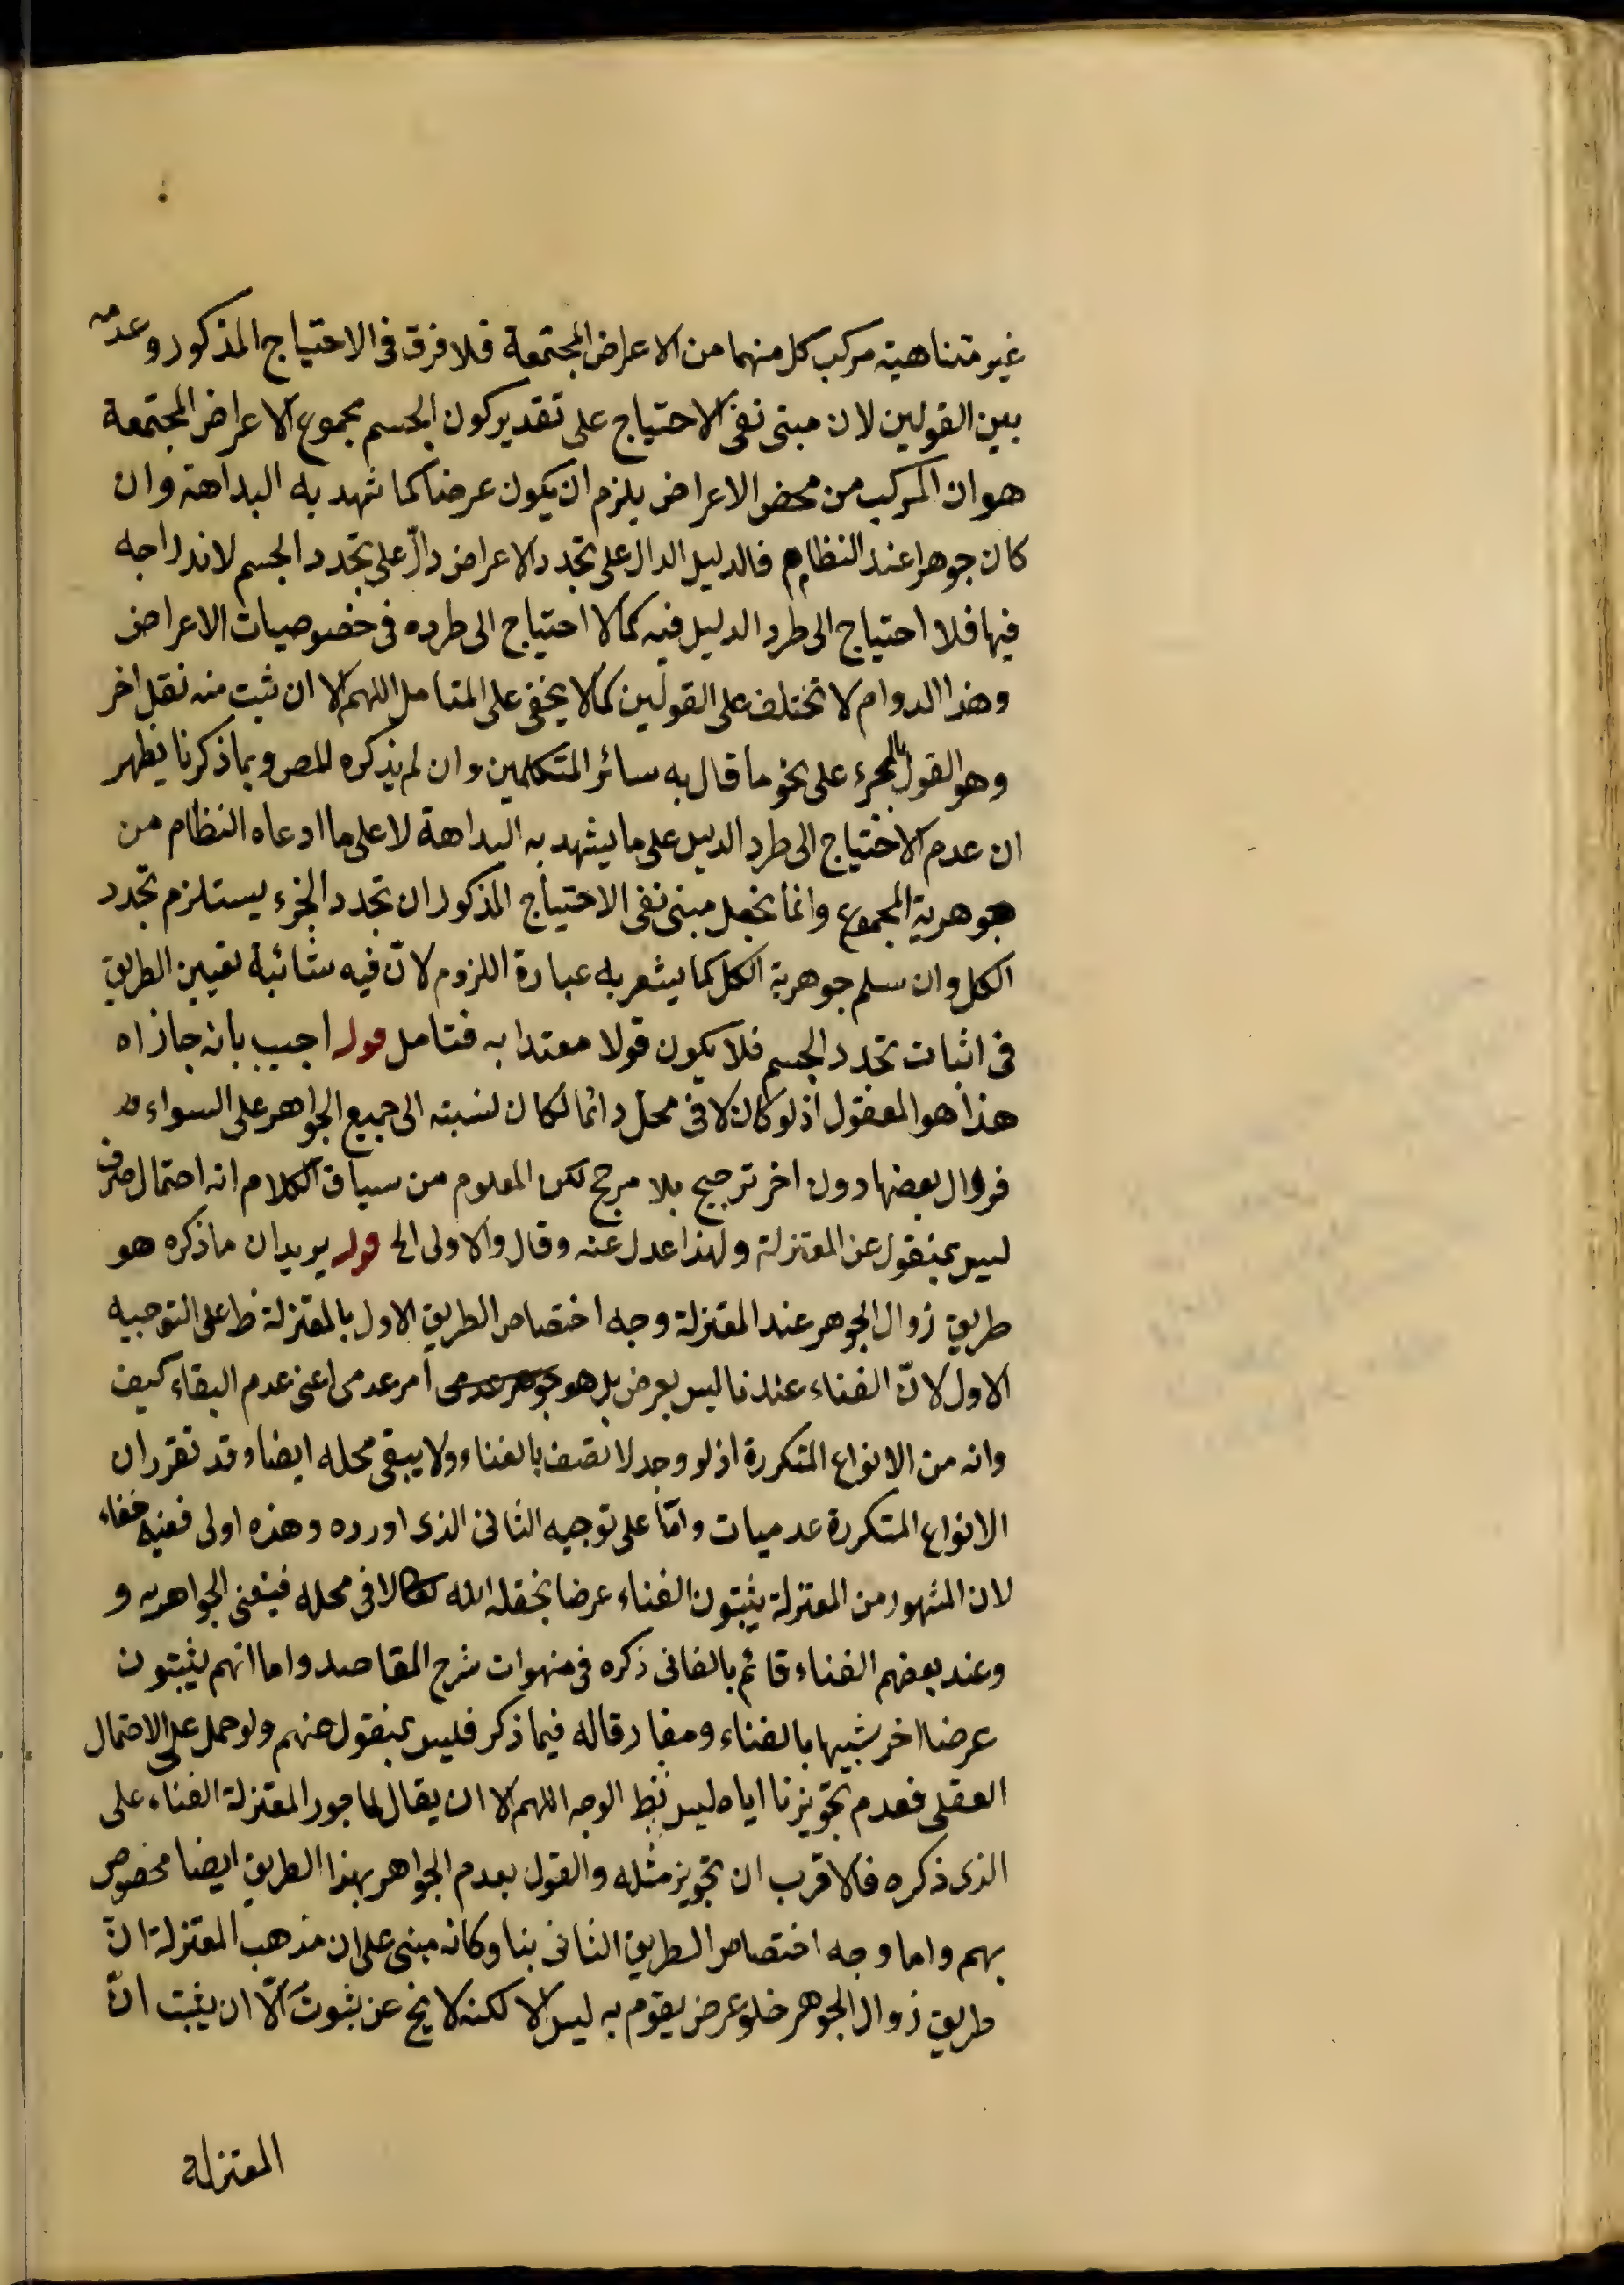 غير متناهية مركب كل منهما من الاعراض المجتمعة فلا فرق فى الاحتياج المذكور وعدمه
بين القولين لان مبنى نفى الاحتياج على تقدير كون الجسم مجموع الاعراض المجتمعة
هو ان المركب من محض الاعراض يلزم ان يكون عرضا كما شهد به البداهة وان
كان جوهرا عند النظام فالدليل الدال على تجدد الاعراض دالّ على تجدد الجسم لاندراجه
فيها فلا احتياج الى طرد الدليل فيه كما لا احتياج الى طرده فى خصوصيات الاعراض
وهذا الدوام لا تختلف على القولين كما لا يخفى على المتامل اللهم الا ان ثبت منه نقل اخر
وهو القول بالجزء على نحو ما قال به سائر المتكلمين وان لم يذكره المص وبما ذكرنا يظهر
ان عدم الاحتياج الى طرد الدليل على ما يشهد به البداهة لا على ما ادعاه النظام من
جوهرية المجموع وانما نجعل مبنى نفى الاحتياج المذكور ان تجدد الجزء يستلزم تجدد
الكل وان سلم جوهرية الكل كما يشعر به عبارة اللزوم لانّ فيه شائبة تعيين الطريق
فى اثبات تجدد الجسم فلا يكون قولا معتدا به فتامل قوله اجيب بانه جاز اه
هذا هو المعقول اذ لو كان لا فى محل دائما لكان نسبته الى جميع الجواهر على السواء
فزوال بعضها دون اخر ترجيح بلا مرجح لكن المعلوم من سياق الكلام انه احتمال صرف
ليس بمنقول عن المعتزلة ولهذا عدل عنه وقال والاولى الخ قوله يريد ان ما ذكره هو
طريق زوال الجوهر عند المعتزلة وجه اختصاص الطريق الاول بالمعتزلة ظ على التوجيه
الاول لانّ الفناء عندنا ليس بعرض بل هو امر عدمى اعنى عدم البقاء كيف
وانه من الانواع المتكررة اذ لو وجد لاتصف بالفناء ولا يبقى محله ايضا وقد تقرر ان
الانواع المتكررة عدميات وامّا على توجيه الثانى الذى اورده وهذه اولى ففيه خفاء
لان المشهور من المعتزلة يثبتون الفناء عرضا يخلقه الله لا فى محله فيفنى الجواهر به و
وعند بعضهم الفناء قائم بالفانى ذكره فى منهوات شرح المقاصد واما انهم يثبتون
عرضا اخر شبيها بالفناء ومقار قاله فيما ذكر فليس بمنقول عنهم ولو حمل على الاحتمال
العقلى فعدم تجويزنا اياه ليس بظ الوجه اللهم الا ان يقال لما جوز المعتزلة الفناء على
الذى ذكره فالاقرب ان تجويز مثله والقول بعدم الجواهر بهذا الطريق ايضا مخصوص
بهم واما وجه اختصاص الطريق الثانى بنا وكانه مبنى على ان مذهب المعتزلة انّ
طريق زوال الجوهر خلو عرض يقوم به ليس الا لكنه لا يخ عن ثبوت الّا ان يثبت انّ
المعتزلة